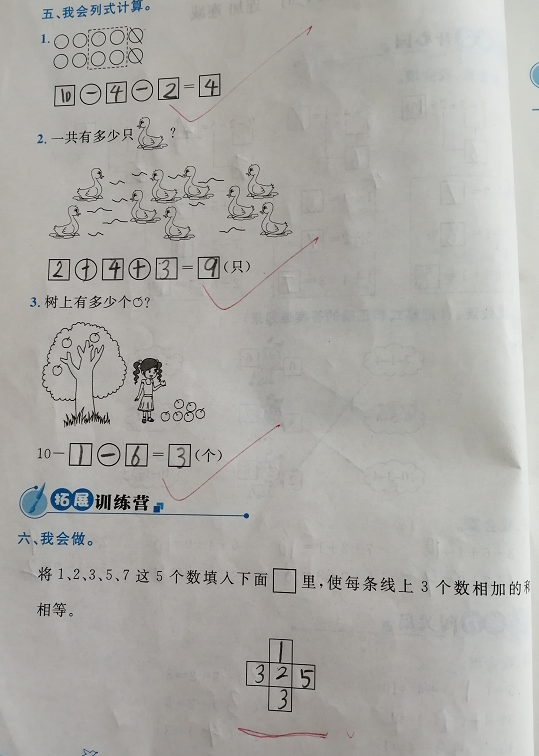 五、我会列式计算。
1.
10－4－2＝4
2. 一共有多少只？
2＋4＋3＝9(只)
3. 树上有多少个？
10－1－6＝3(个)
拓展训练营
六、我会做。
将1、2、3、5、7这5个数填入下面□里，使每条线上3个数相加的和
相等。
1
3 2 5
3